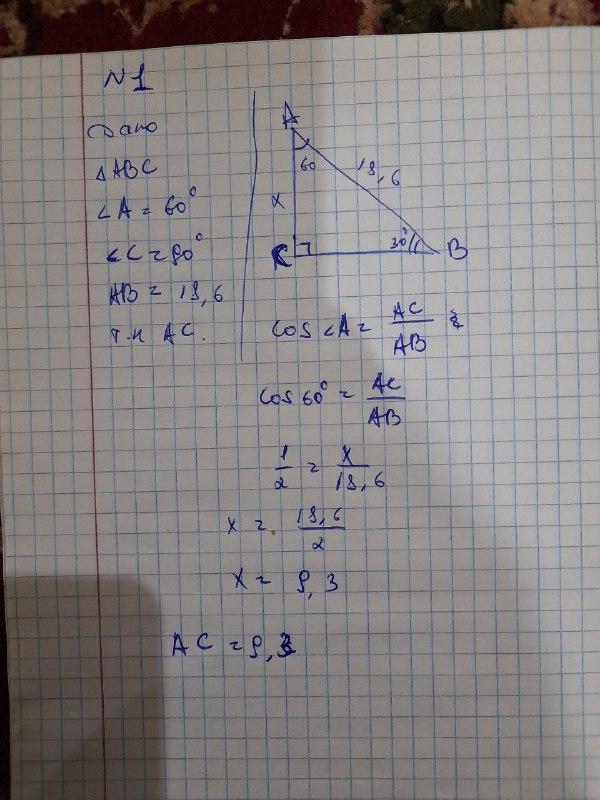 N1
Дано
△ABC
∠A = 60°
∠C = 90°
AB = 18,6
т.н AC.
A
60
18,6
x
C
30°
B
cos∠A = AC/AB
cos60° = AC/AB
1/2 = x/18,6
x = 18,6/2
x = 9,3
AC = 9,3